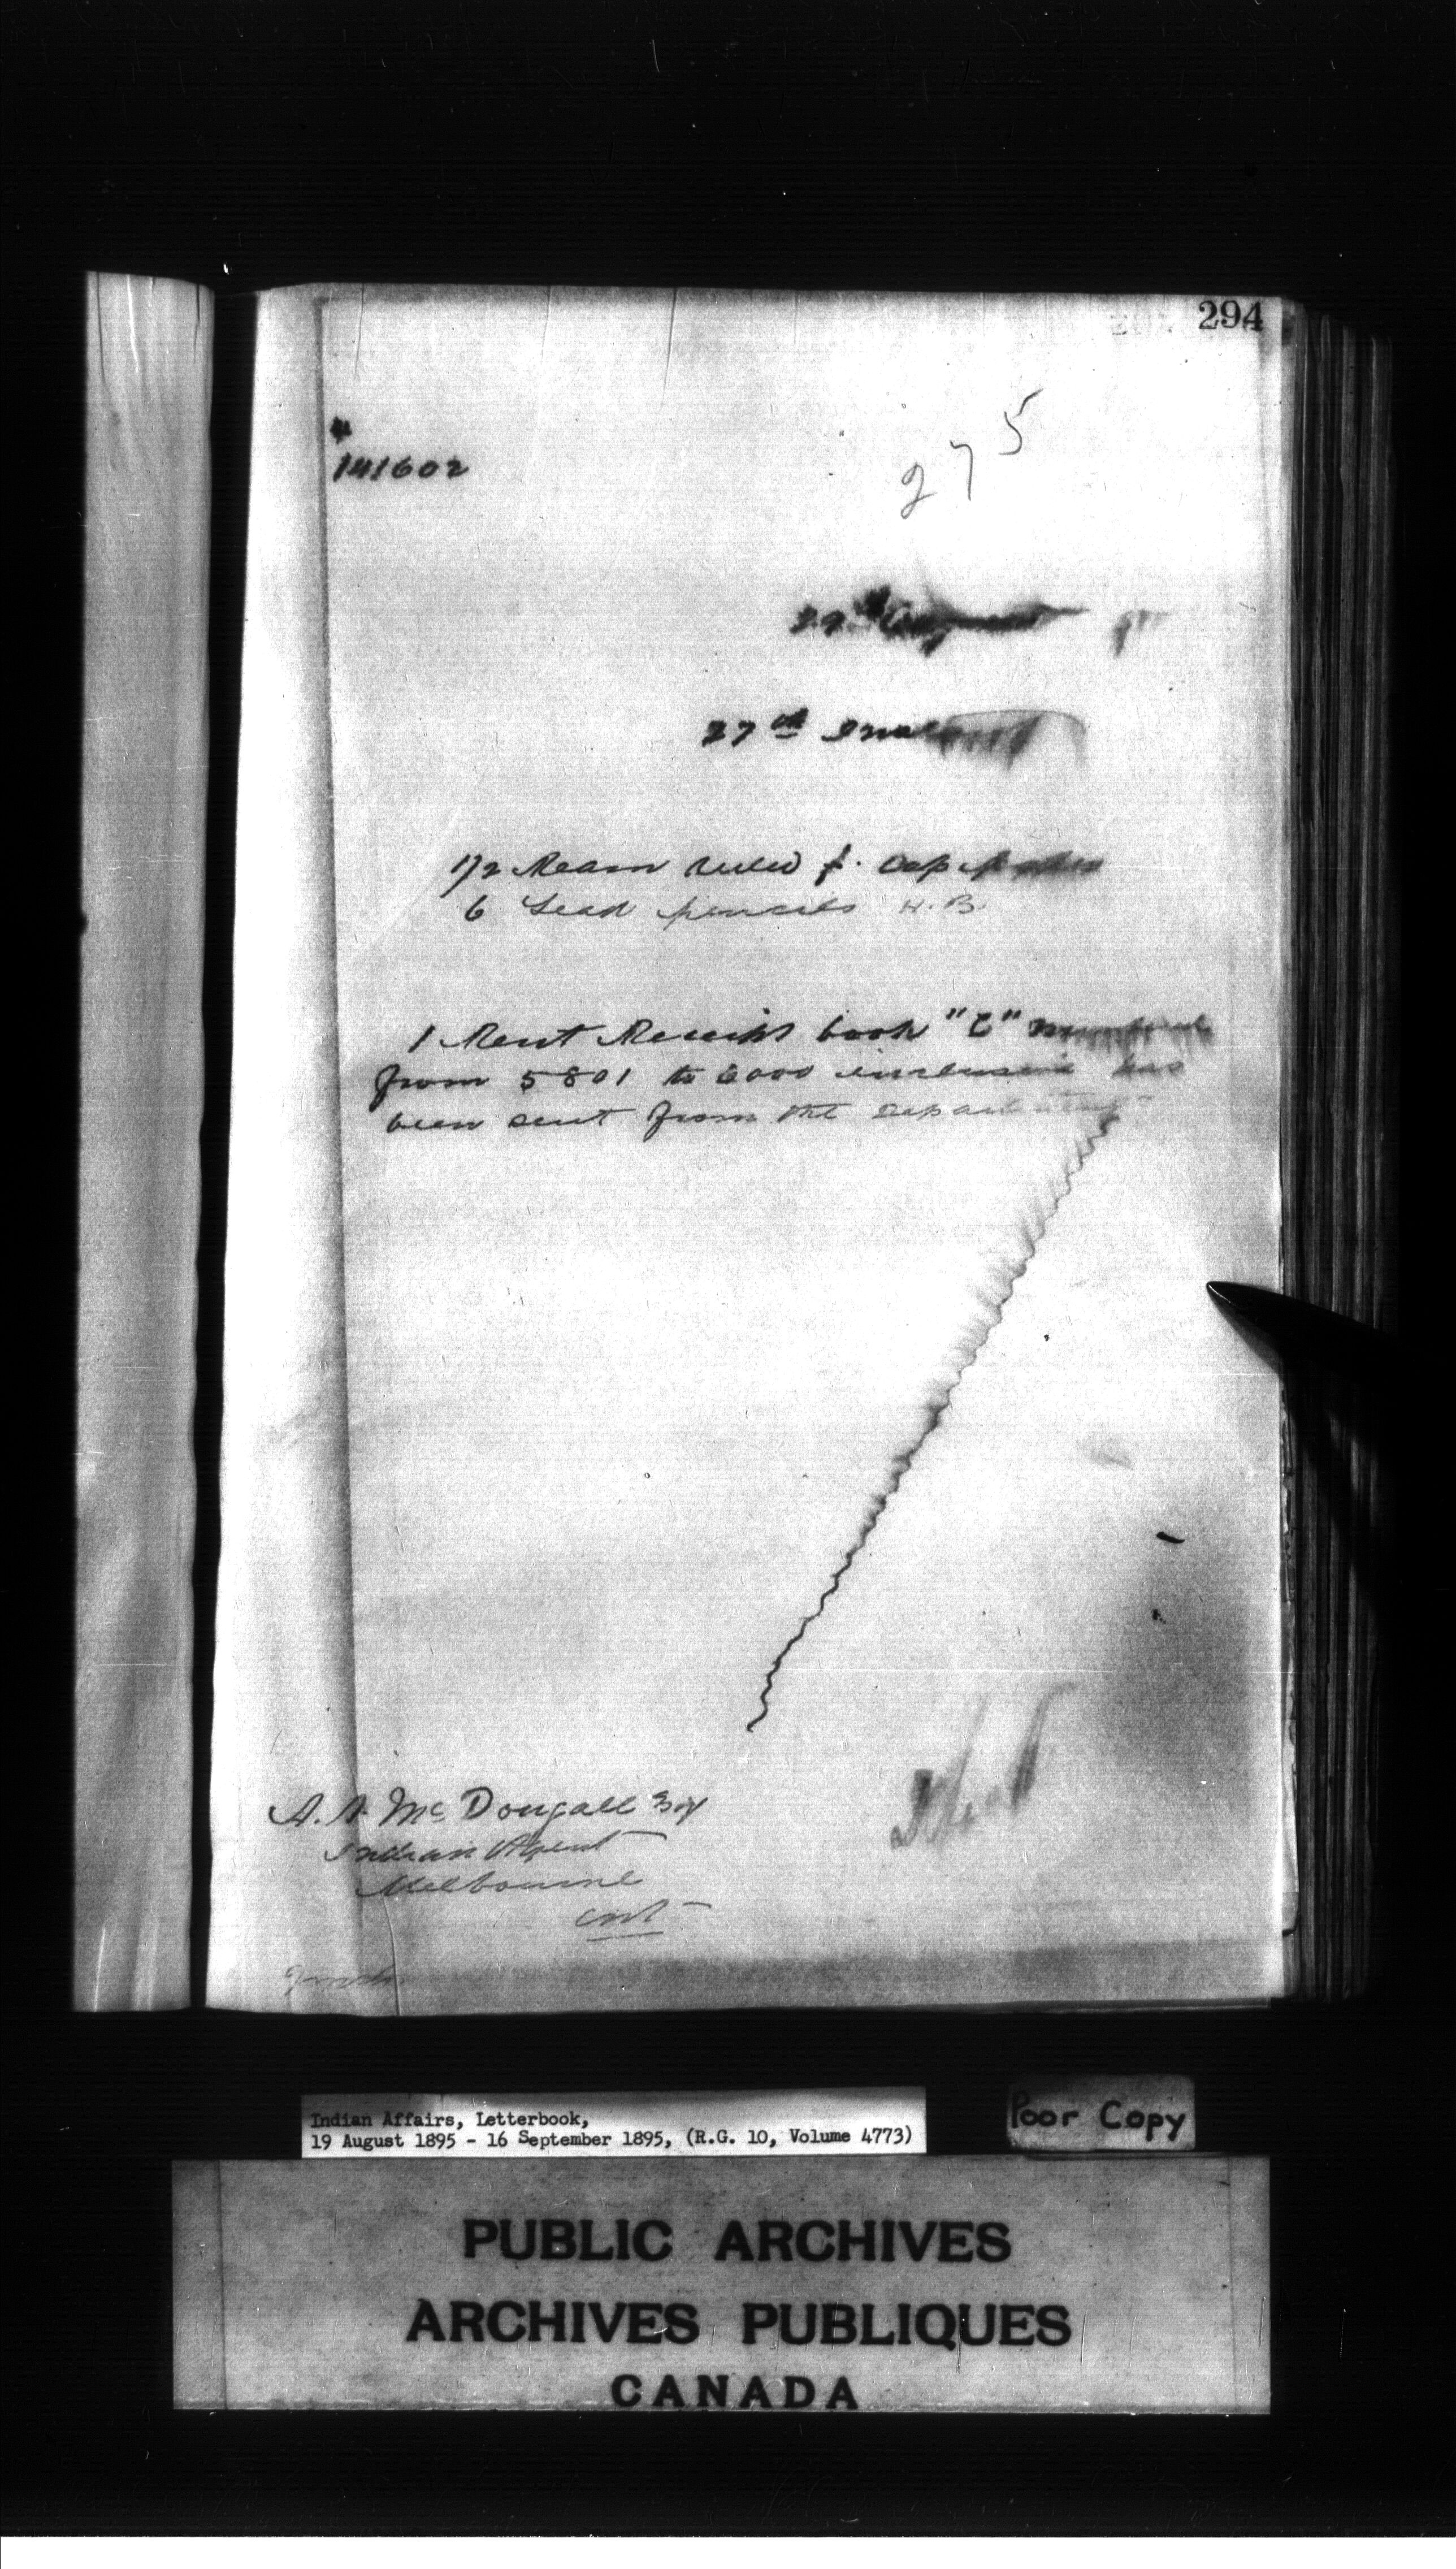 294
141602
275
29th August
27th Instant
1/2 Ream ruled f. cap
6 Lead pencils H.B.
1 Rent Receipt book "C" numbered
from 5801 to 6000 inclusive has
been sent from the Department
A. McDougall Esq
Indian Agent
Melbourne
Ont
Indian Affairs, Letterbook,
19 August 1895 - 16 September 1895, (R.G. 10, Volume 4773)
Poor Copy
PUBLIC ARCHIVES
ARCHIVES PUBLIQUES
CANADA